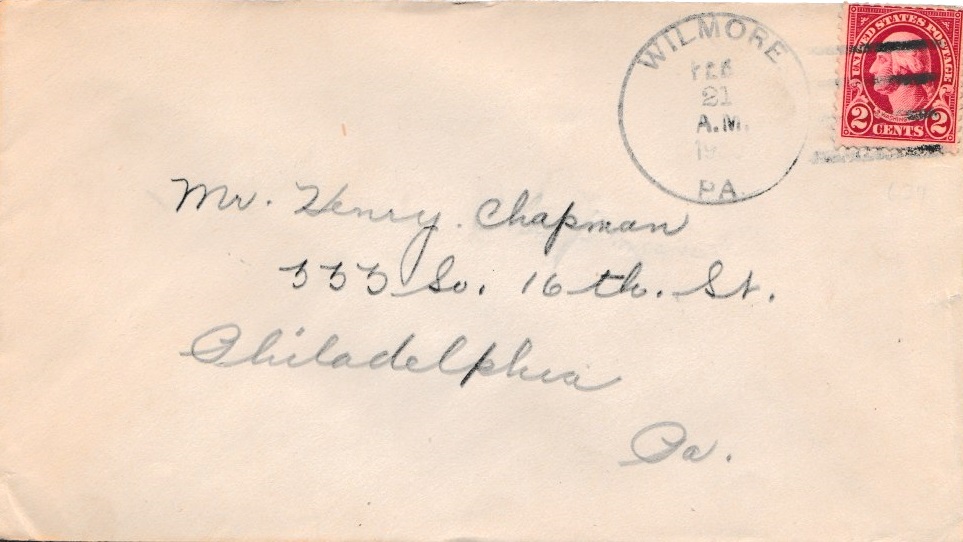 WILMORE
FEB
21
A.M.
PA.
UNITED STATES POSTAGE
2 CENTS 2
Mr. Henry Chapman
333 So. 16th. St.
Philadelphia
Pa.